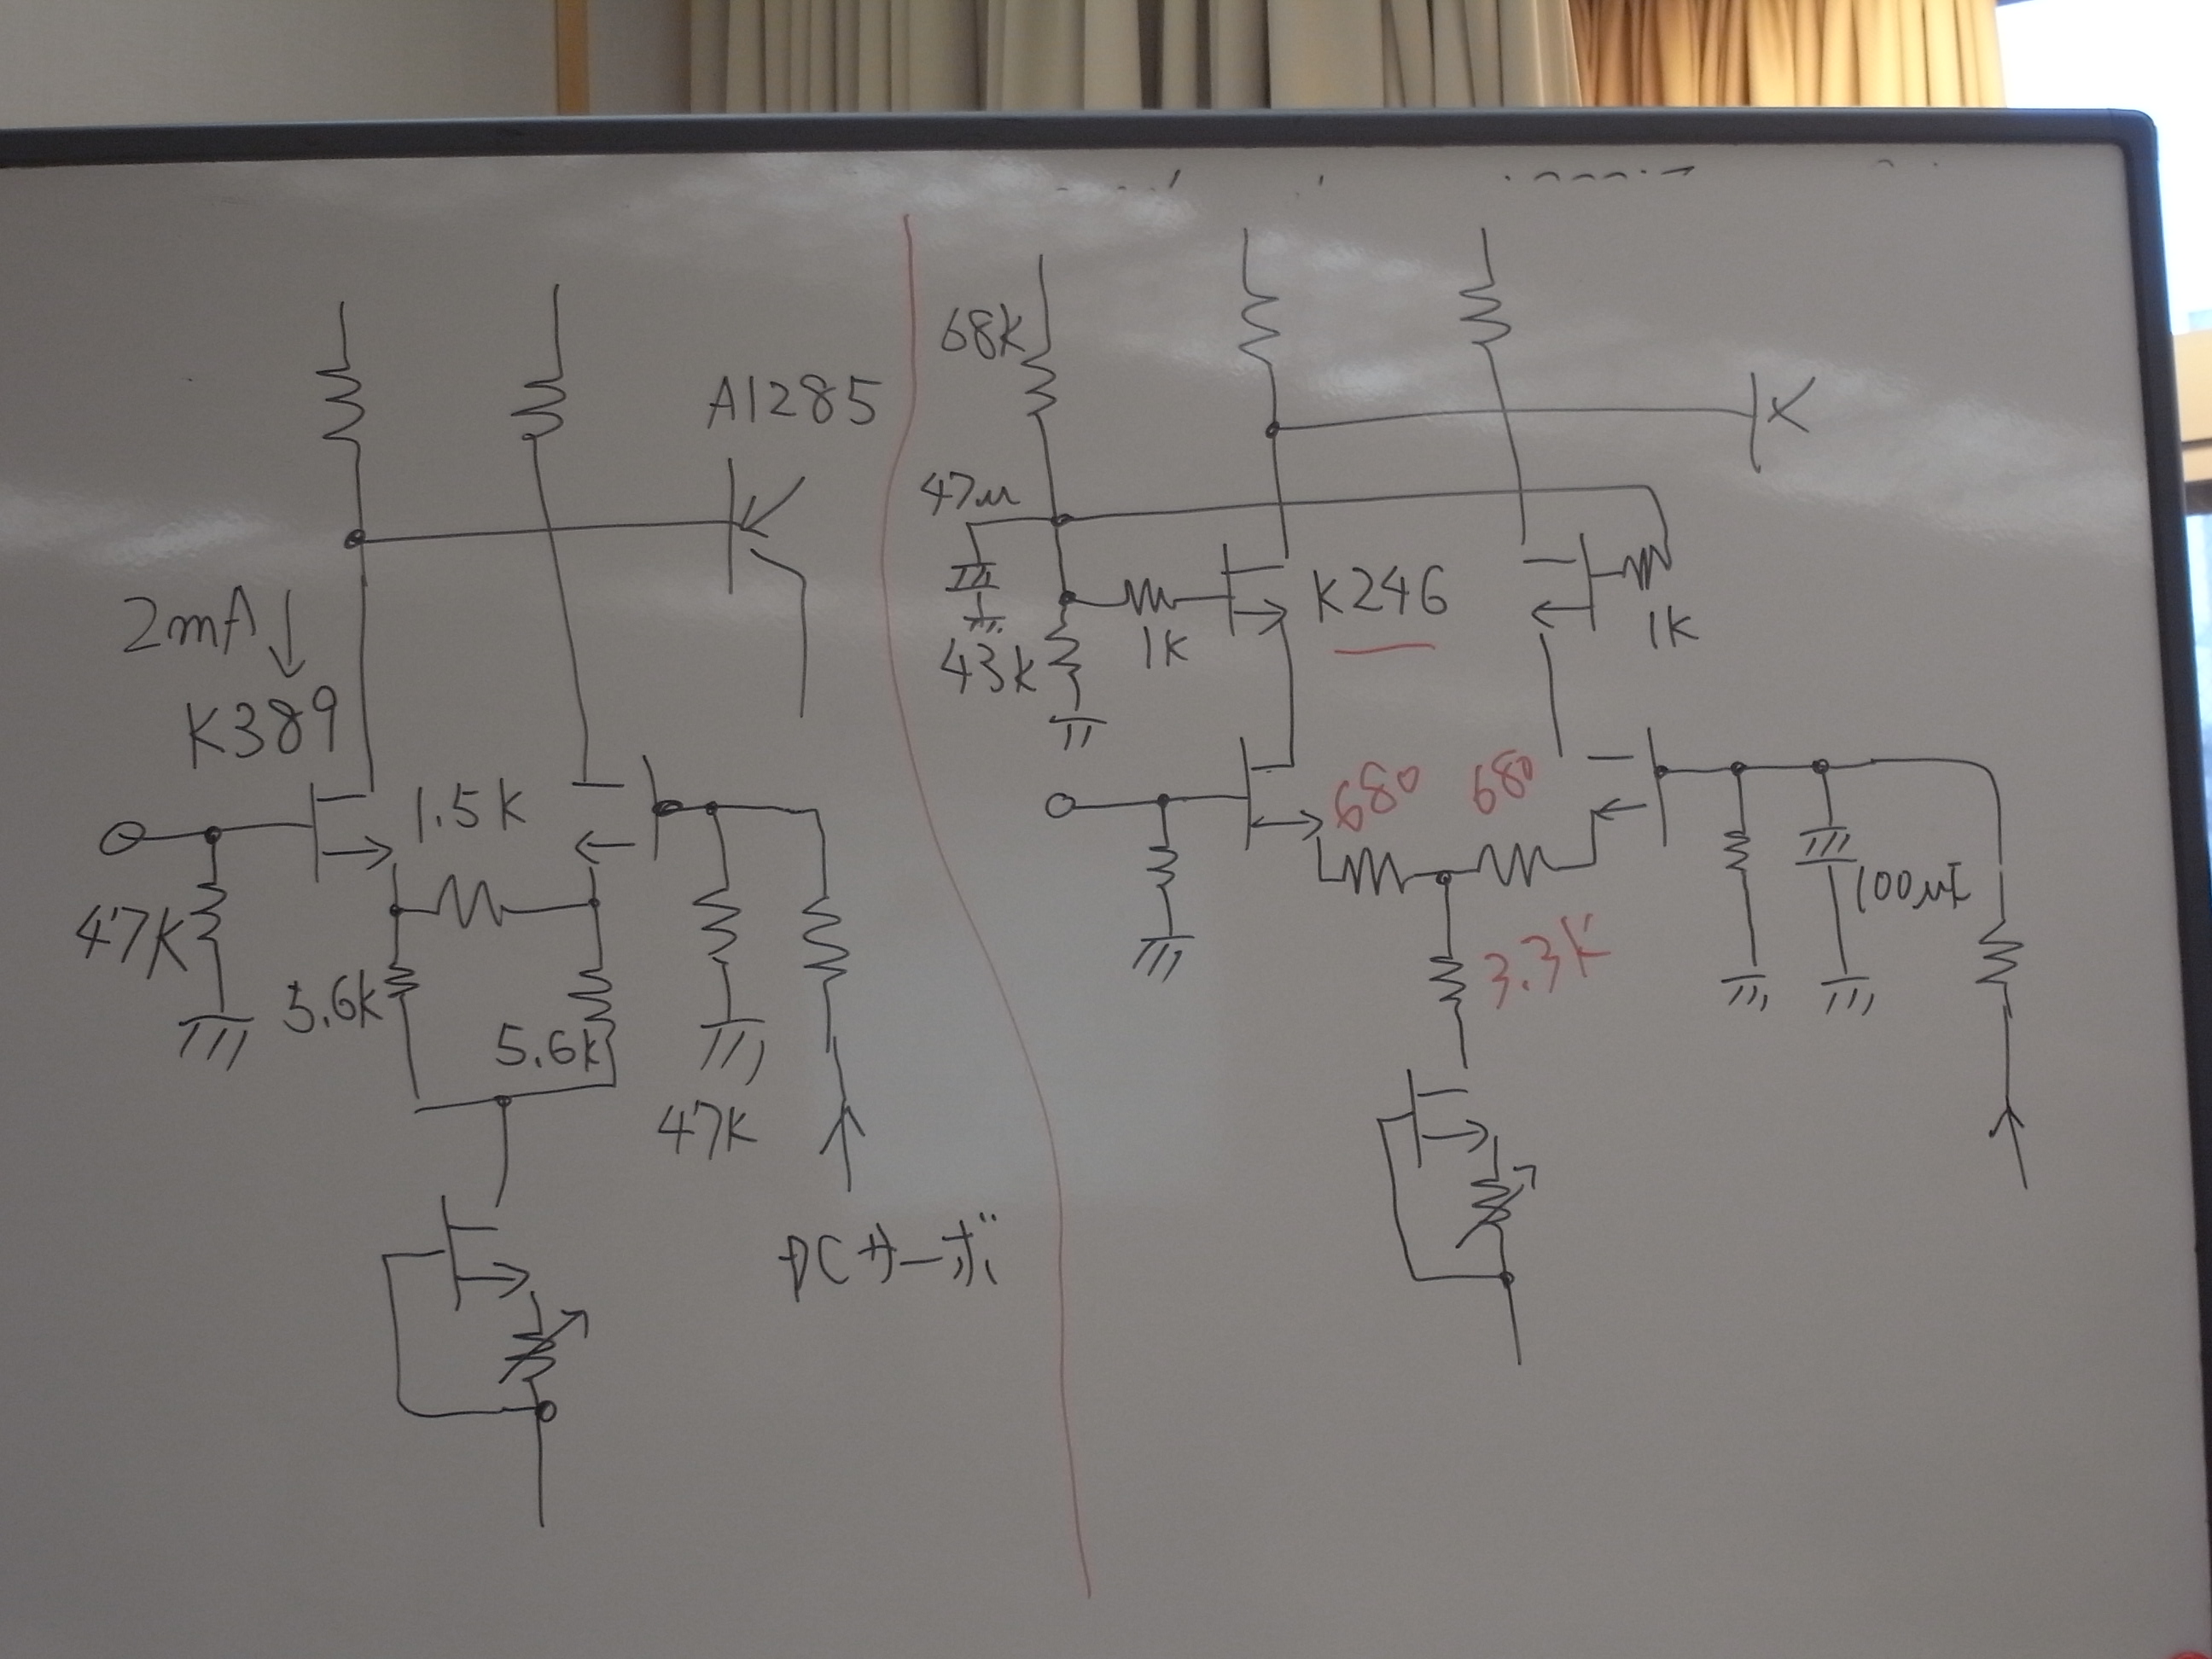 A1285
2mA
K389
1.5K
47K
5.6k
5.6k
47K
DCサーボ
68K
47μ
K246
1K
1K
43K
680
680
100μF
3.3K